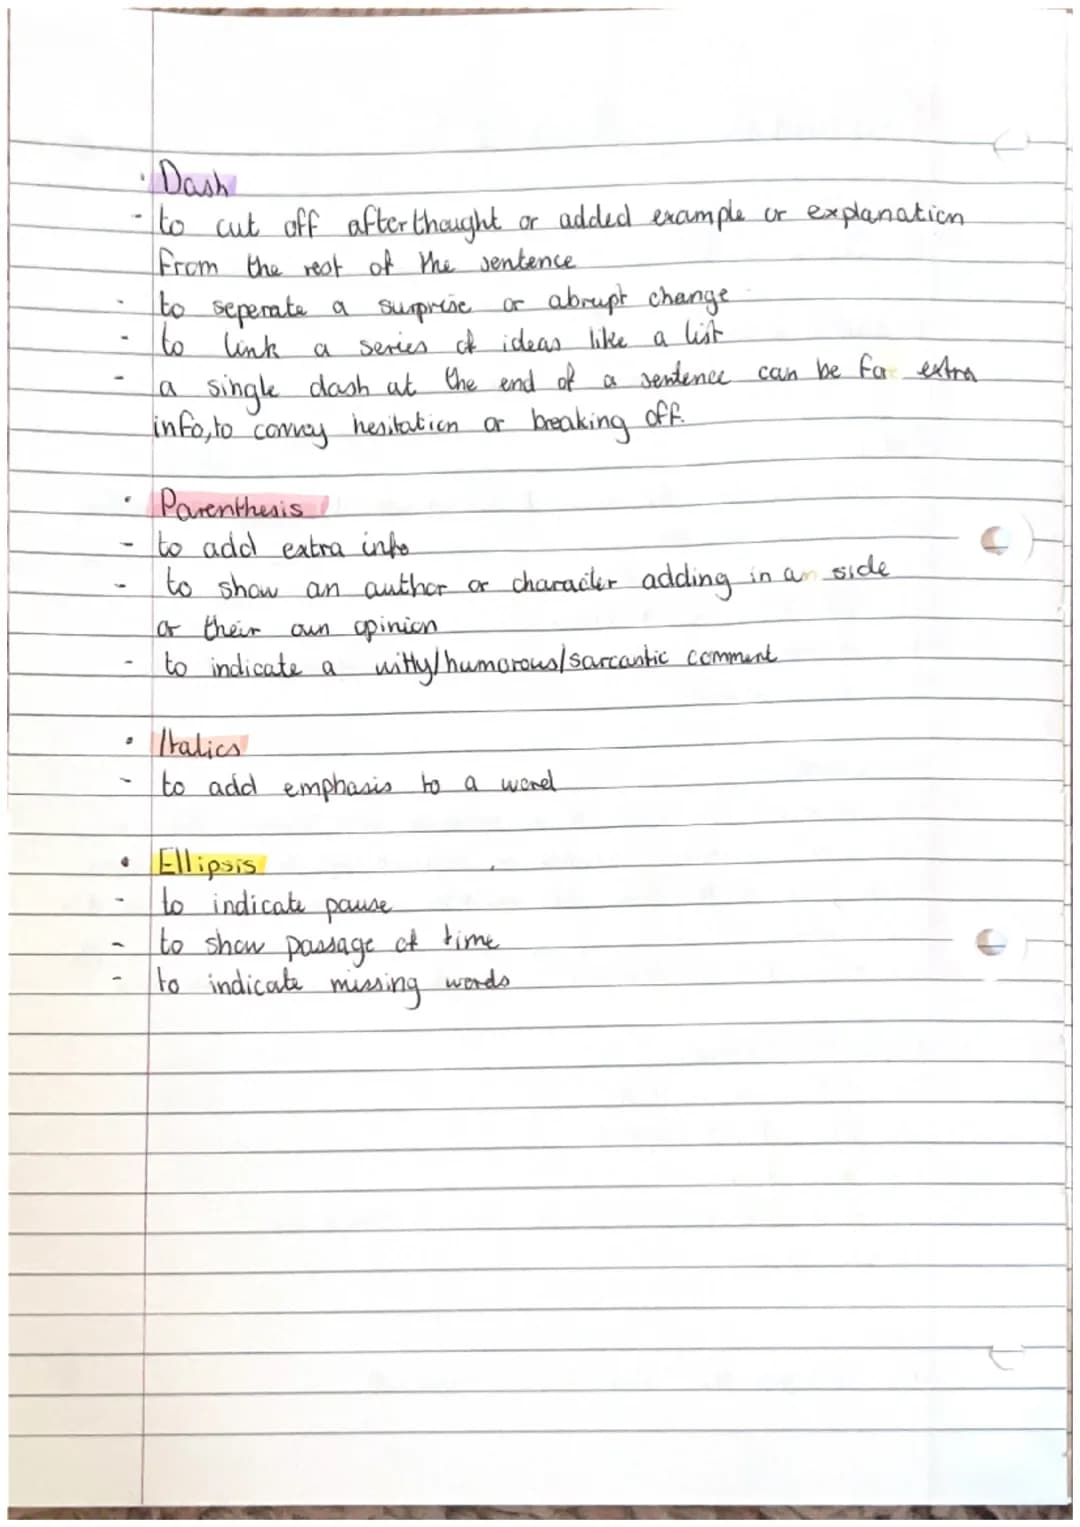 · Dash
- to cut off afterthought or added example or explanation
from the rest of the sentence
- to seperate a surprise or abrupt change
- to link a series of ideas like a list
- a single dash at the end of a sentence can be for extra
info, to convey hesitation or breaking off.
· Parenthesis
- to add extra info
- to show an author or character adding in an side
or their own opinion
- to indicate a witty/humorous/sarcastic comment
· Italics
- to add emphasis to a word
· Ellipsis
- to indicate pause
- to show passage of time
- to indicate missing words